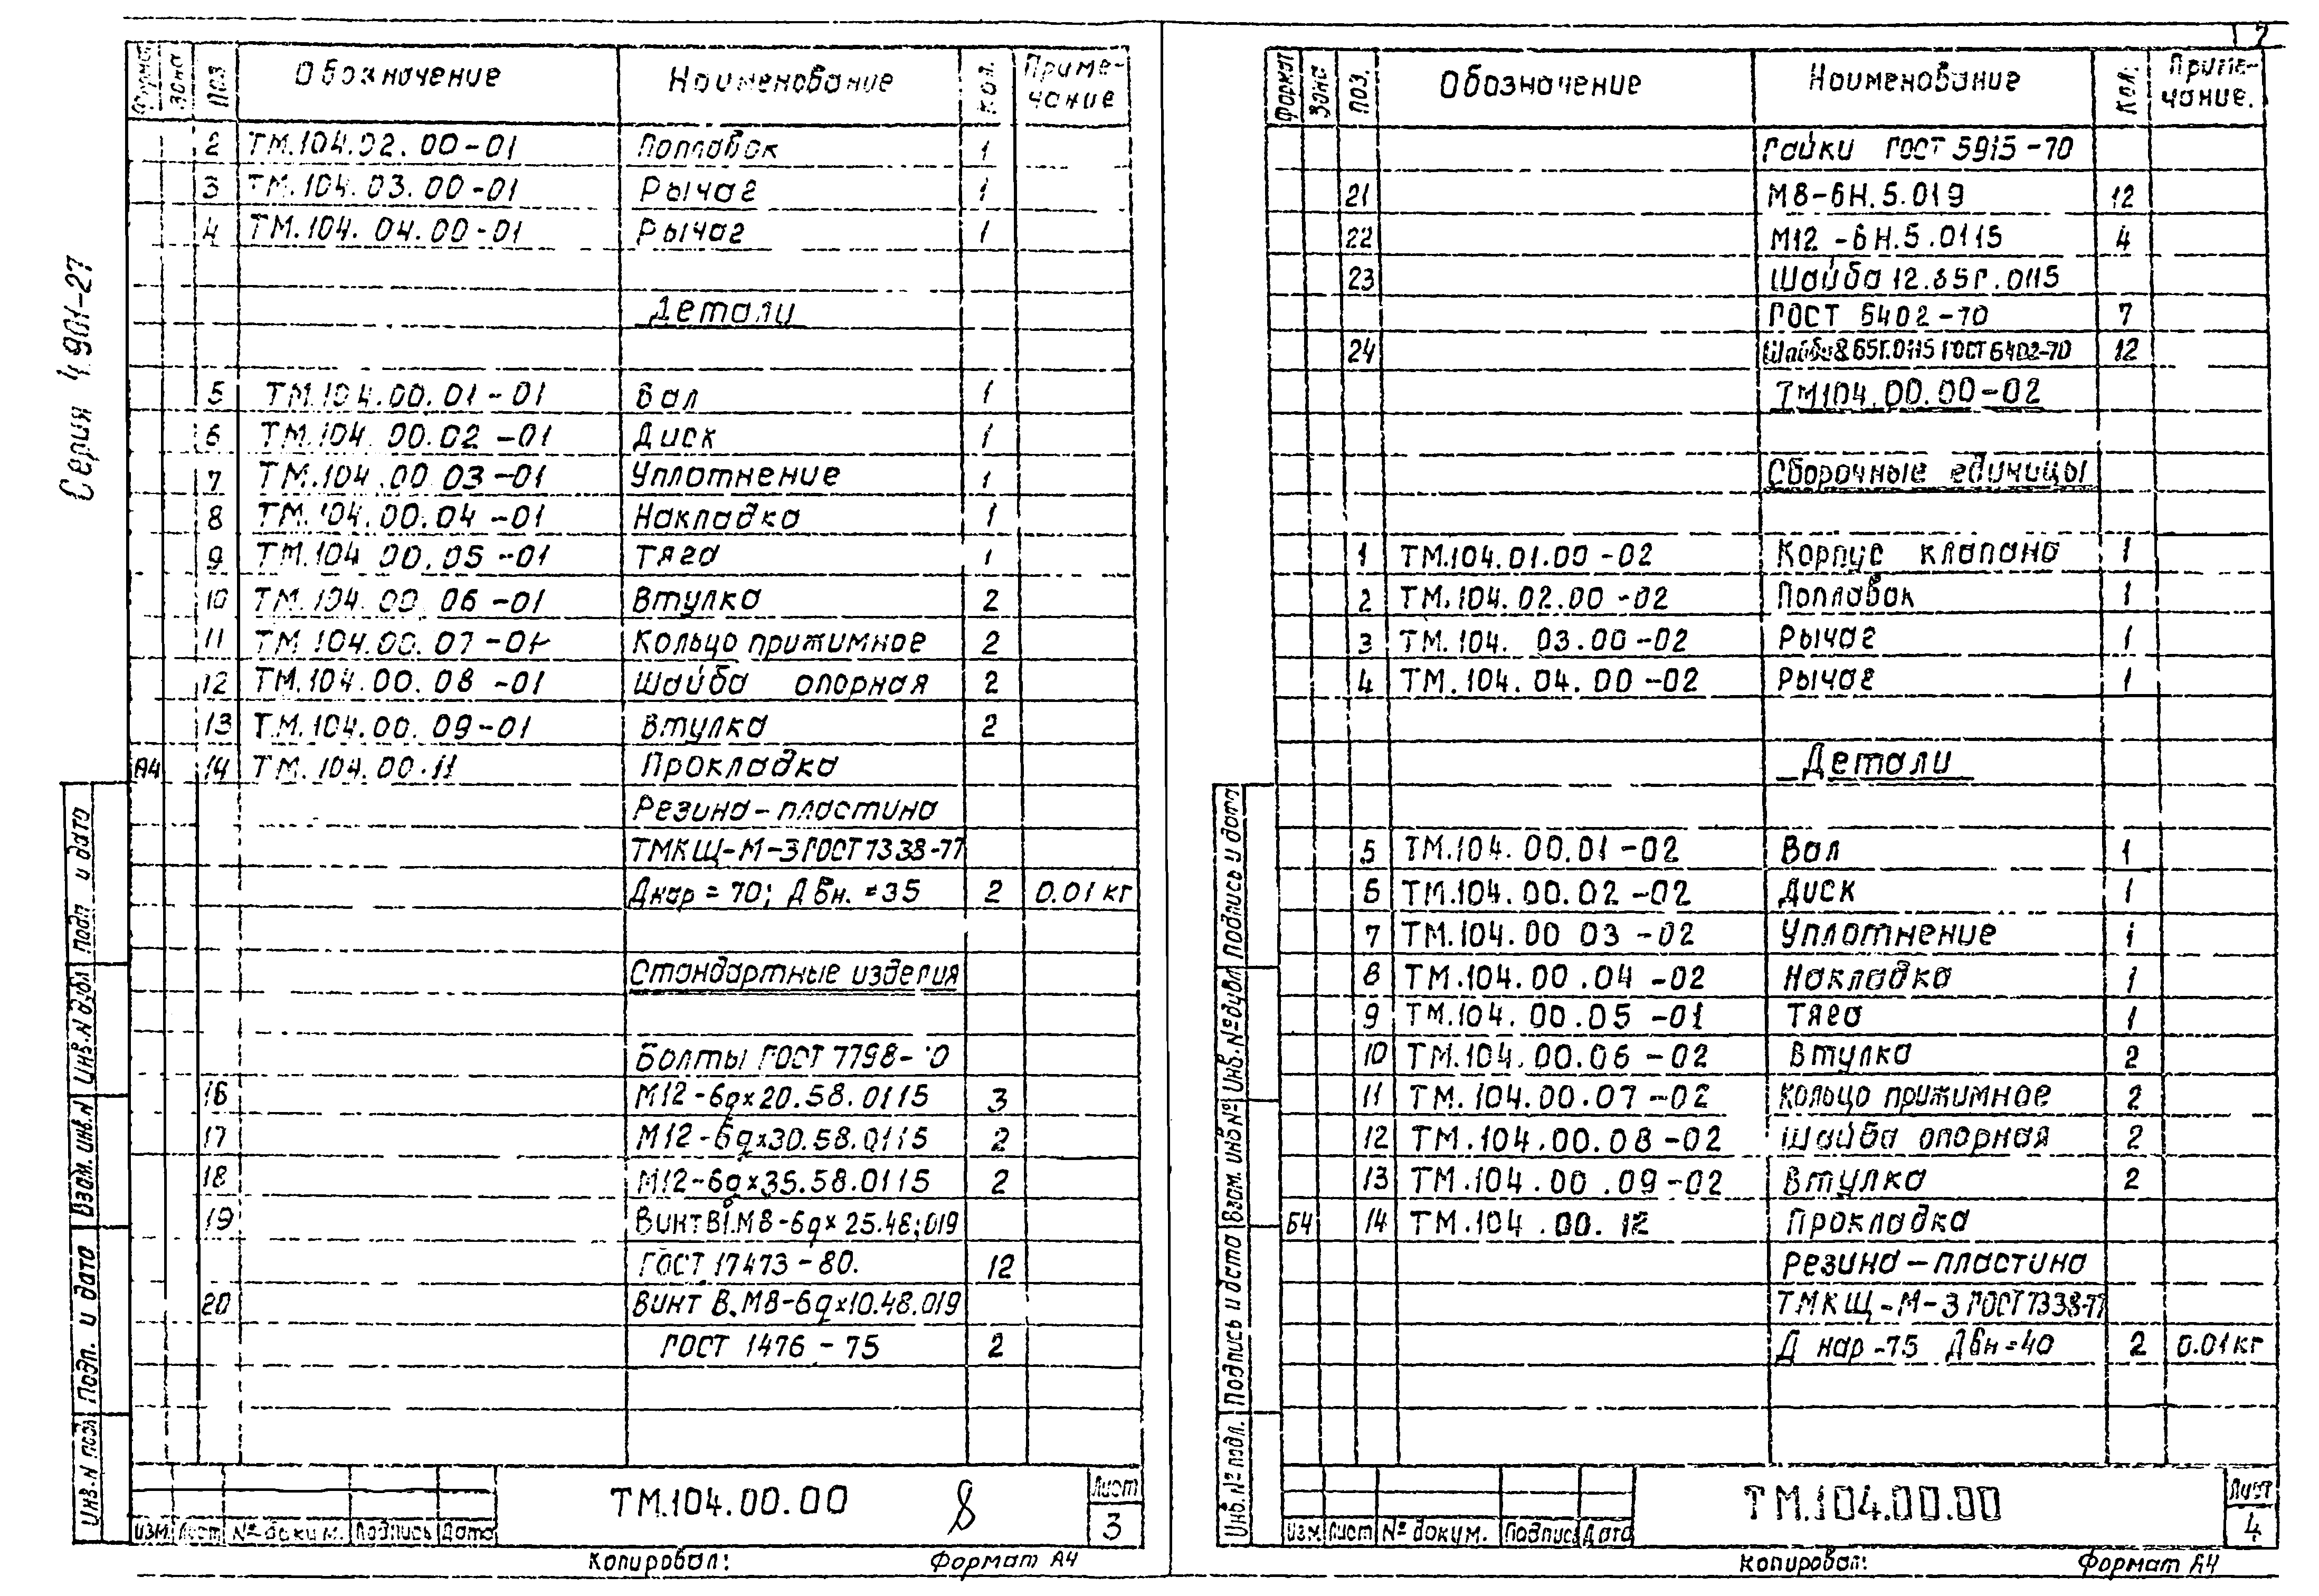 Серия 4.901-27
Формат Зона Поз Обозначение Наименование Кол. Приме-
чание
2 ТМ.104.02.00-01 Поплавок 1
3 ТМ.104.03.00-01 Рычаг 1
4 ТМ.104.04.00-01 Рычаг 1
Детали
5 ТМ.104.00.01-01 Вал 1
6 ТМ.104.00.02-01 Диск 1
7 ТМ.104.00 03-01 Уплотнение 1
8 ТМ.104.00.04-01 Накладка 1
9 ТМ.104 00.05-01 Тяга 1
10 ТМ.104.00.06-01 Втулка 2
11 ТМ 104.00.07-01 Кольцо прижимное 2
12 ТМ.104.00.08-01 Шайба опорная 2
13 ТМ.104.00.09-01 Втулка 2
А4 14 ТМ.104.00.11 Прокладка
Резина-пластина
ТМКЩ-М-3 ГОСТ 7338-77
Днар=70; Двн.=35 2 0.01 кг
Стандартные изделия
Болты ГОСТ 7798-70
16 М12-6gх20.58.0115 3
17 М12-6gх30.58.0115 2
18 М12-6gх35.58.0115 2
19 Винт В1.М8-6gх25.48.019
ГОСТ 17473-80. 12
20 Винт В.М8-6gх10.48.019
ГОСТ 1476-75 2
Инв.N подл Подп. и дата Взам.инв.N Инв.N дубл Подп и дата
ТМ.104.00.00 8 Лист
3
Изм Лист № докум. Подпись Дата
Копировал: Формат А4
7
Формат Зона Поз. Обозначение Наименование Кол. Приме-
чание.
Гайки ГОСТ 5915-70
21 М8-6Н.5.019 12
22 М12-6Н.5.0115 4
23 Шайба 12.65Г.0115
ГОСТ 6402-70 7
24 Шайба 8.65Г.0115 ГОСТ 6402-70 12
ТМ104.00.00-02
Сборочные единицы
1 ТМ.104.01.00-02 Корпус клапана 1
2 ТМ.104.02.00-02 Поплавок 1
3 ТМ.104. 03.00-02 Рычаг 1
4 ТМ.104.04.00-02 Рычаг 1
Детали
5 ТМ.104.00.01-02 Вал 1
6 ТМ.104.00.02-02 Диск 1
7 ТМ.104.00 03-02 Уплотнение 1
8 ТМ.104.00.04-02 Накладка 1
9 ТМ.104.00.05-01 Тяга 1
10 ТМ.104.00.06-02 Втулка 2
11 ТМ.104.00.07-02 Кольцо прижимное 2
12 ТМ.104.00.08-02 Шайба опорная 2
13 ТМ.104.00.09-02 Втулка 2
Б4 14 ТМ.104.00.12 Прокладка
Резина-пластина
ТМКЩ-М-3 ГОСТ 7338-77
Д нар-75 Двн=40 2 0.01кг
Инв.№ подл. Подпись и дата Взам. инв№ Инв.№дубл Подпись и дата
ТМ.104.00.00 Лист
4
Изм Лист № докум. Подпись Дата
Копировал: Формат А4